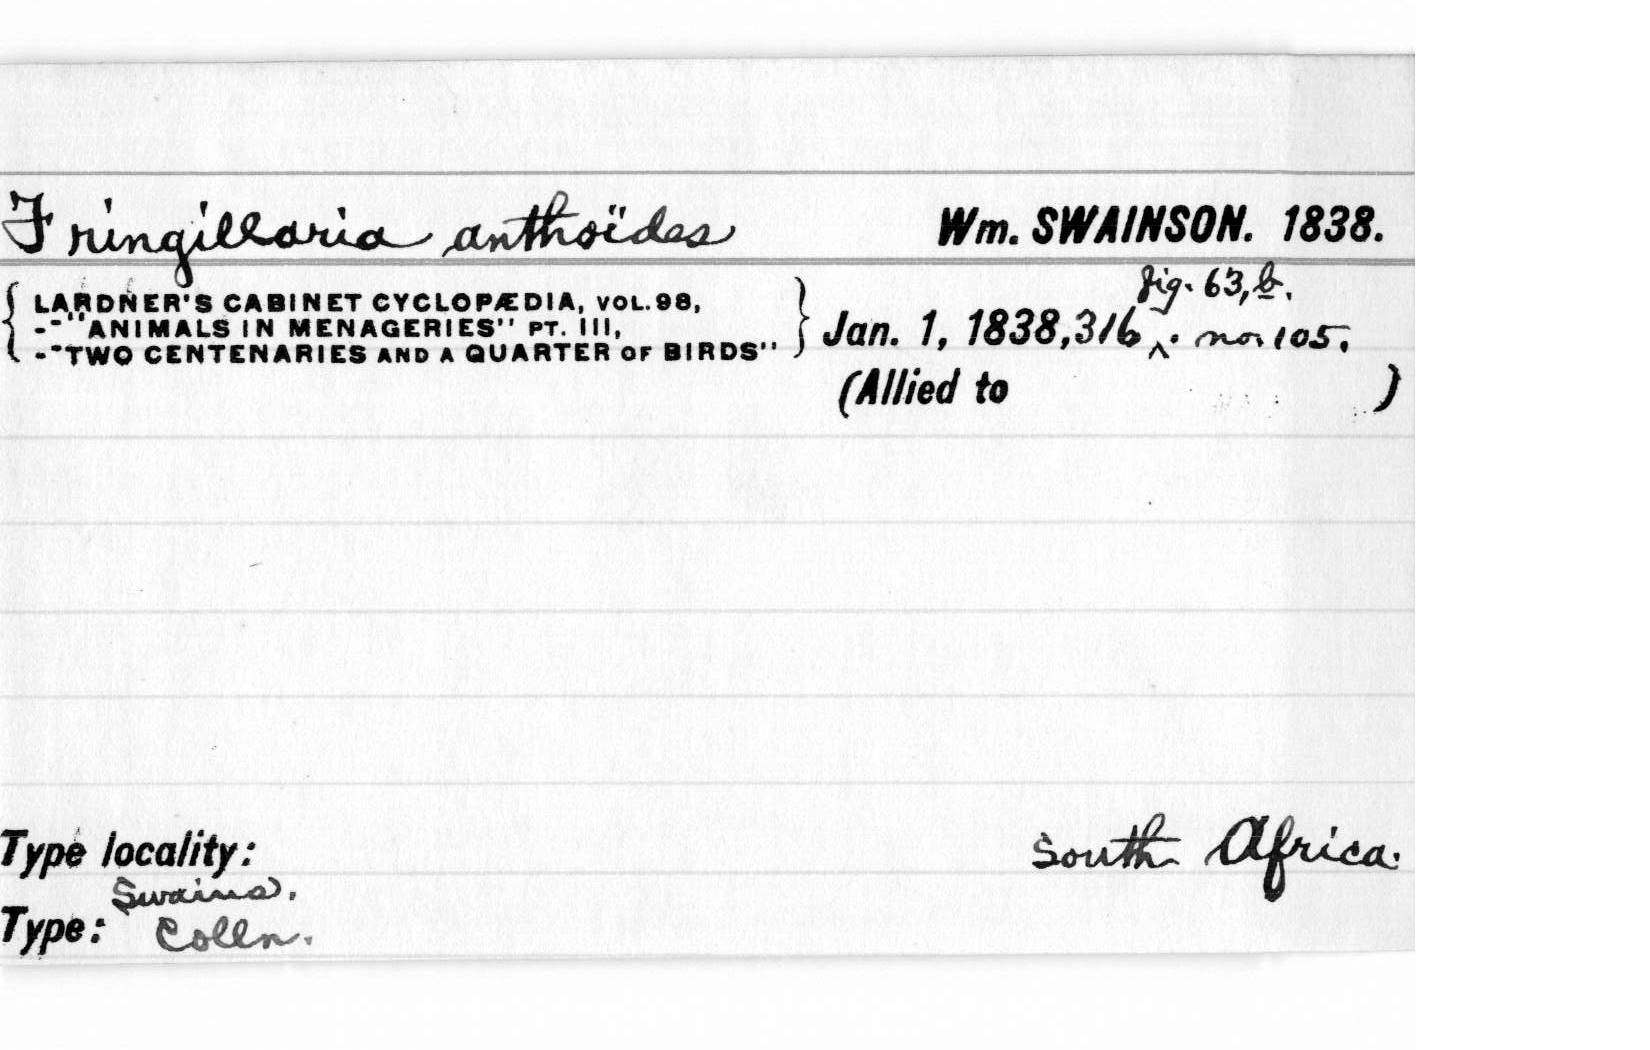 Fringillaria anthoïdes Wm. SWAINSON. 1838.
LARDNER'S CABINET CYCLOPÆDIA, VOL. 98,
--"ANIMALS IN MENAGERIES" PT. III,
--"TWO CENTENARIES AND A QUARTER OF BIRDS"
fig. 63, b.
Jan. 1, 1838, 316 ^. no. 105.
(Allied to )
Type locality: South Africa.
Swains.
Type: Colln.